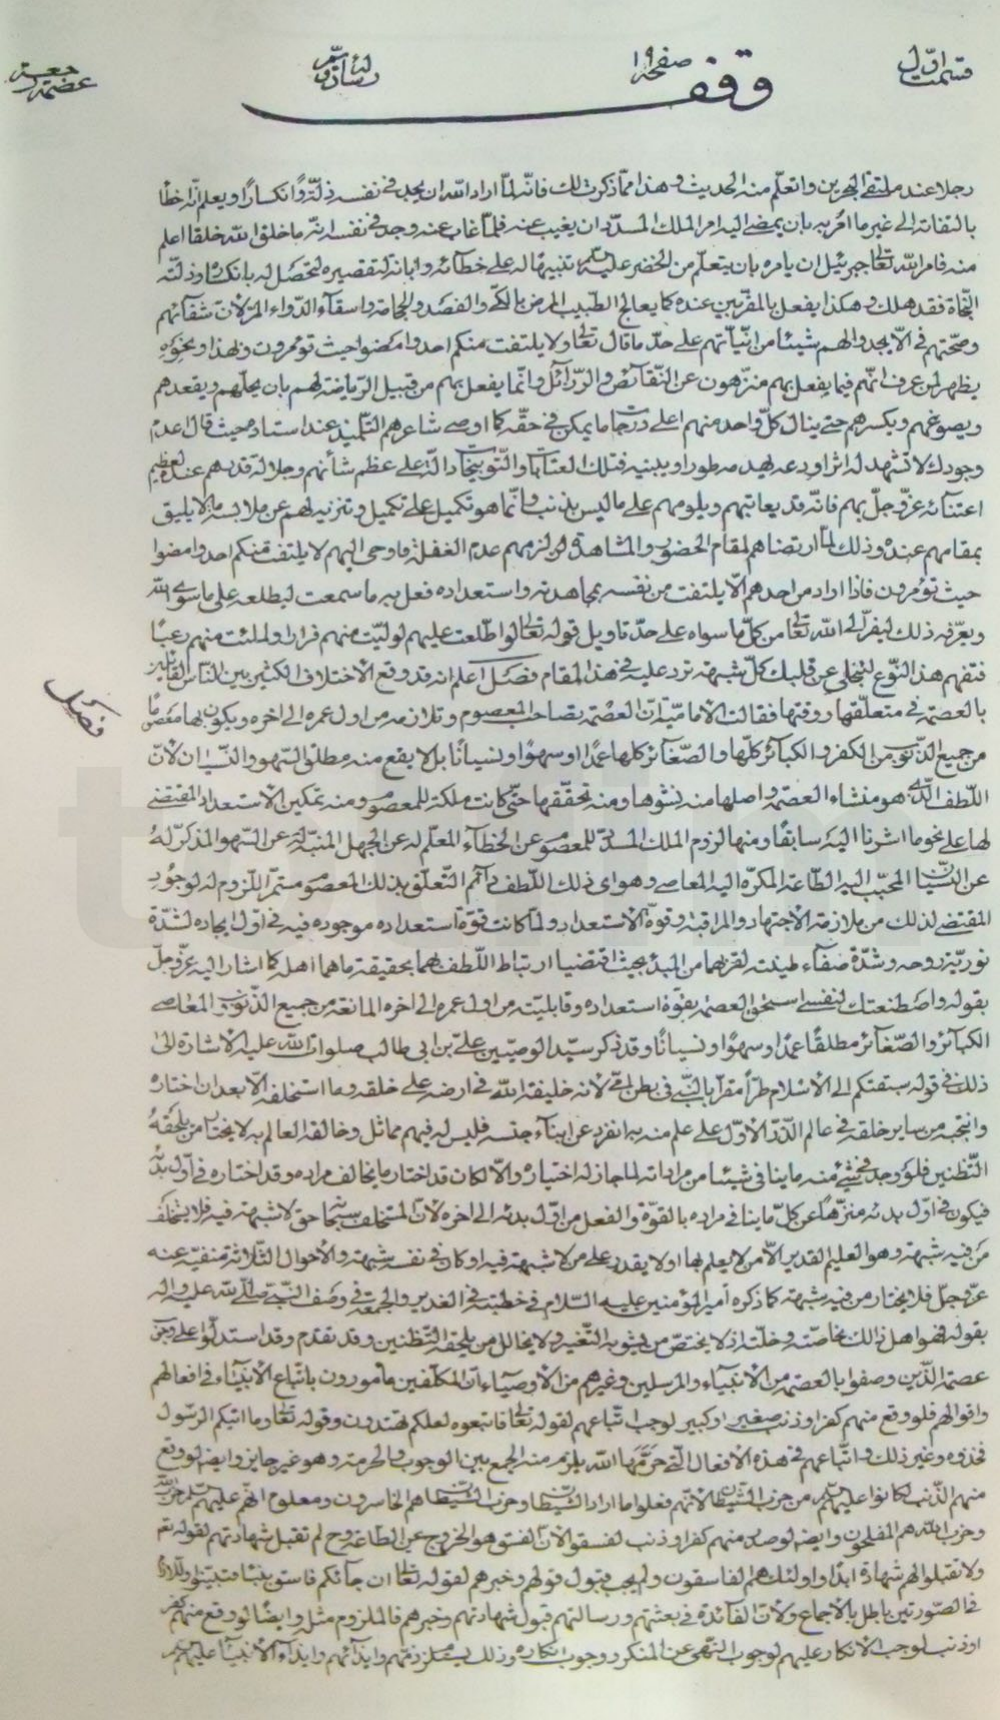 قسمت اوّل
صفحه ١٩
وقف
رجلا عند ملتقى البحرين و اتعلّم منه الحديث و هذا ممّا ذكرت لك فانّه لمّا اراد الله ان يجد فى نفسه ذلّة و انكسارًا و يعلم انّه خطأ
بالتفاته الى غير ما امر به بان يمضى اليه امر الملك المسدّد ان يغيب عنه فلمّا غاب عنه وجد فى نفسه انّه ما خلق الله خلقا اعلم
منه فامر الله تعالى جبرئيل ان يامره بان يتعلّم من الخضر عليه السلم تنبيها له على خطائه و ابانة لتقصيره لتحصل له بانكساره و ذلّته
النّجاة فقد هلك و هكذا يفعل بالمقرّبين عنده كما يعالج الطّبيب المرض بالكىّ و الفصد و الحجامة و اسقاء الدّواء المرّ لانّ شفائهم
و صحّتهم فى الّا يجدوا لهم شيئا من انّيّاتهم على حدّ ما قال تعالى و لا يلتفت منكم احد و امضوا حيث تؤمرون و لهذا و نحوه
يظهر لمن عرف انّهم فيما يفعل بهم منزّهون عن النّقائص و الرّذائل و انّما يفعل بهم من قبيل الرّياضة لهم بان يحلّهم و يقعدهم
و يصوغهم و يكسرهم حتى ينال كلّ واحد منهم اعلى درجات ما يمكن فى حقّه كما اوصى شاعرهم التّلميذ عند استاده حيث قال اعدم
وجودك لا تشهد له اثرا و دعه يهدمه طورا و يبنيه فتلك العتابات و التّوبيخات دالّة على عظم شأنهم و جلالة قدرهم عنده لعظيم
اعتنائه عزّ و جلّ بهم فانّه قد يعاتبهم و يلومهم على ما ليس بذنب و انّما هو تكميل على تكميل و تنزيه لهم عن ملابسة ما لا يليق
بمقامهم عنده و ذلك لمّا ارتضاهم لمقام الحضور و المشاهدة و لزمهم عدم الغفلة فاوحى اليهم لا يلتفت منكم احد و امضوا
حيث تؤمرون فاذا اراد من احدهم الّا يلتفت من نفسه بمجاهدته و استعداده فعل به ما سمعت ليطلعه على ما سوى الله
و يعرّفه ذلك ليفرّ الى الله تعالى من كلّ ما سواه على حدّ تاويل قوله تعالى لو اطّلعت عليهم لولّيت منهم فرارا و لملئت منهم رعبًا
فتفهم هذا النّوع لتنجلى عن قلبك كلّ شبهة ترد عليه فى هذا المقام فصل اعلم انه قد وقع الاختلاف الكثير بين النّاس القائلين
بالعصمة فى متعلّقها و وقتها فقالت الاماميّة انّ العصمة بصاحب المعصوم و تلازمه من اول عمره الى اخره و يكون بها معصومًا
فصل
من جميع الذّنوب من الكفر و الكبائر كلّها و الصّغائر كلها عمدًا او سهوًا و نسيانًا بل لا يقع منه مطلق السّهو و النّسيان لانّ
اللّطف الّذى هو منشاء العصمة و اصلها منه نشوها و منه تحقّقها حتّى كانت ملكة للمعصوم و منه تمكين الاستعداد المقتضى
لها على نحو ما اشرنا اليه سابقًا و منها لزوم الملك المسدّد للمعصوم عن الخطاء المعلّم له عن الجهل المنبّه له عن السّهو المذكّر له
عن النّسيان المحبّب اليه الطّاعة المكرّه اليه المعاصى و هو اى ذلك اللّطف دائم التّعلّق بذلك المعصوم مستمرّ اللّزوم له لوجود
المقتضى لذلك من ملازمة الاجتهاد و المراقبة و قوّة الاستعداد و لمّا كانت قوّة استعداده موجودة فيه فى اوّل ايجاده لشدّة
نوريّة روحه و شدّة صفاء طينته لقربهما من المبدء بحيث اقتضيا ارتباط اللّطف بهما بحقيقة ما هما اهله كما اشار اليه عزّ و جلّ
بقوله و اصطنعتك لنفسى استحقّ العصمة بقوّة استعداده و قابليّته من اوّل عمره الى اخره المانعة من جميع الذّنوب المعاصى
الكبائر و الصّغائر مطلقًا عمدًا و سهوًا و نسيانًا و قد ذكر سيّد الوصيّين علىّ بن ابى طالب صلوات الله عليه الاشارة الى
ذلك فى قوله سبقتكم الى الاسلام طرّاً مقرّا بالنّبى فى بطن امّى لانه خليفة الله فى ارضه على خلقه و ما استخلفه الّا بعد ان اختاره
و انتجبه من ساير خلقه فى عالم الذّرّ الاوّل على علم منه به انفرد عن ابناء جنسه فليس له فيهم مماثل و خالقه العالم به لا يختار من يلحقه
التّظنين فلو وجد فى شىء منه ما ينافى شيئا من مراداته لما جاز له اختياره و الّا لكان قد اختار ما يخالف مراده و قد اختاره فى اوّل بدئه
فيكون فى اوّل بدئه منزّها عن كلّ ما ينافى مراده بالقوّة و الفعل من اوّل بدئه الى اخره لانّ المستخلف سبحانه حق لا شبهة فيه فلا يستخلف
من فيه شبهة و هو العليم القدير الّا من لا يعلم بها او لا يقدر على من لا شبهة فيه او كان فى نفسه شبهة و الاحوال الثّلاثة منفيّة عنه
عزّ و جلّ فلا يختار من فيه شبهة كما ذكره أمير المؤمنين عليه السّلام فى خطبته فى الغدير و الجمعة فى وصف النّبىّ صلّى الله عليه و اله
بقوله فهو اهل ذلك بخاصّته و خلّته اذ لا يختصّ من يشوبه التّغيير و لا يخالل من يلحقه التّظنين و قد تقدّم و قد استدلّوا على
عصمة الّذين وصفوا بالعصمة من الانبياء و المرسلين و غيرهم من الاوصياء انّ المكلّفين مأمورون باتّباع الانبياء فى افعالهم
و اقوالهم فلو وقع منهم كفر او ذنب صغير او كبير لوجب اتّباعهم لقوله تعالى فاتبعوه لعلكم تهتدون و قوله تعالى و ما اتيكم الرّسول
فخذوه و غير ذلك و اتّباعهم فى هذه الافعال الّتى حرّمها الله يلزم منه الجمع بين الوجوب و الحرمة و هو غير جايز و ايضا لو وقع
منهم الذّنب لكانوا عليهم السلم من حزب الشّيطان لانّهم فعلوا ما اراد الشّيطان و حزب الشّيطان هم الخاسرون و معلوم انّهم عليهم السلم حزب الله
و حزب الله هم المفلحون و ايضا لو صدر منهم كفر او ذنب لفسقوا لانّ الفسق هو الخروج عن الطّاعة و ح لم تقبل شهادتهم لقوله تعا
و لا تقبلوا لهم شهادة ابدًا و اولئك هم الفاسقون و لم يجب قبول قولهم و خبرهم لقوله تعالى ان جائكم فاسق بنبأ فتبيّنوا
فى الصّورتين باطل بالاجماع و لانّ الفائدة فى بعثتهم و رسالتهم قبول شهادتهم و خبرهم فالملزوم مثله و ايضًا لو وقع منهم كفر
او ذنب لوجب الانكار عليهم لوجوب النّهى عن المنكر و وجوب انكاره و ذلك يستلزم ذمّهم و ايذائهم و ايذاء الانبياء عليهم السلم